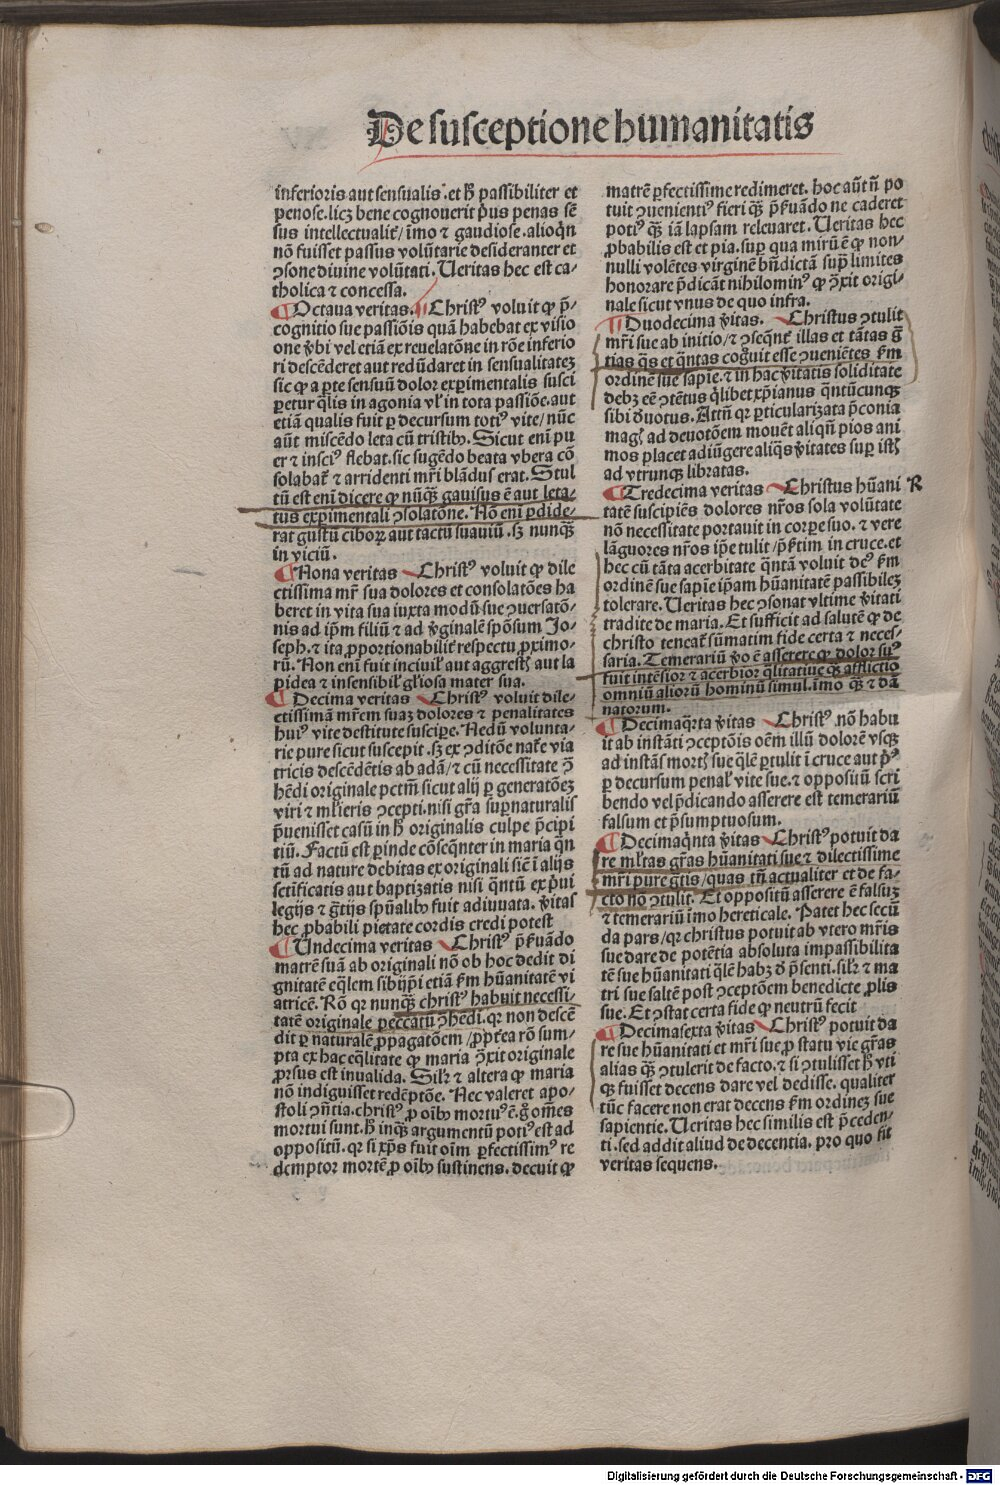 De susceptione humanitatis
inferioris aut sensualis. et hͦ passibiliter et
penose. licꝫ bene cognouerit pͥus penas sē
sus intellectualit᷑/ īmo ⁊ gaudiose. alioqͥn
nō fuisset passus volūtarie desideranter et
ꝯsone diuine volūtati. Ueritas hec est ca⸗
tholica ⁊ concessa.
¶ Octaua veritas. ¶ Christꝰ voluit ꝙ p̄⸗
cognitio sue passiōis quā habebat ex visio
one v̓bi vel etiā ex reuelatōne in rōe inferio
ri descēderet aut redūdaret in sensualitateꝫ
sic ꝙ a ꝑte sensuū dolor exꝑimentalis susci
ꝑetur qͣlis in agonia vl̓ in tota passiōe. aut
etiā qualis fuit ꝑ decursum totiꝰ vite/ nūc
aūt miscēdo leta cū tristibꝰ. Sicut enī pu
er ⁊ insciꝰ flebat. sic sugēdo beata vbera cō
solabat᷑ ⁊ arridenti mr̄i blādus erat. Stul
tū est enī dicere ꝙ nūqͣꝫ gauisus ē aut leta⸗
tus exꝑimentali ꝯsolatōne. Nō enī ꝑdide⸗
rat gustū ciboꝝ aut tactū suauiū. sꝫ nunqͣꝫ
in viciū.
¶ Nona veritas Christꝰ voluit ꝙ dile
ctissima mr̄ sua dolores et consolatōes ha
beret in vita sua iuxta modū sue ꝯuersatō⸗
nis ad ip̄m filiū ⁊ ad v̓ginalē spōsum Jo⸗
seph. ⁊ ita ꝓportionabilit᷑ respectu ꝓximo⸗
rū. Non enī fuit inciuil̓ aut aggrestꝭ aut la
pidea ⁊ insensibil̓ gl̓iosa mater sua.
¶ Decima veritas Christꝰ voluit dile⸗
ctissimā mr̄em suaꝫ dolores ⁊ penalitates
huiꝰ vite destitute suscipe. Nedū volunta⸗
rie pure sicut suscepit. sꝫ ex ꝯditōe nat᷑e via
tricis descēdētis ab adā/ ⁊ cū necessitate ꝯ̄
hēdi originale pctm̄ sicut alij ꝑ generatōeꝫ
viri ⁊ ml̓ieris ꝯcepti. nisi gr̄a suꝑnaturalis
p̄uenisset casū in hͦ originalis culpe p̄cipi
tiū. Factū est ꝑinde cōseqͣnter in maria qͣn
tū ad nature debitas ex originali sic̄ ī alijs
sctificatis aut baptizatis nisi qͣntū ex pͥui
legijs ⁊ gr̄tijs spūalibꝰ fuit adiuuata. v̓itas
hec ꝓbabili pietate cordis credi potest
¶ Undecima veritas Christꝰ p̄ẜuādo
matrē suā ab originali nō ob hoc dedit di
gnitatē eq̄lem sibijpͥi etiā ẜm hūanitatē vi
atricē. Rō qꝛ nunqͣꝫ christꝰ habuit necessi
tatē originale peccatū ꝯhēdi. qꝛ non descē
dit ꝑ naturalē ꝓpagatōem/ ꝓpt̓ea rō sum⸗
pta ex hac eq̄litate ꝙ maria ꝯ̄xit originale
ꝓrsus est inualida. Sil̓r ⁊ altera ꝙ maria
nō indiguisset redēptōe. Nec valeret apo⸗
stoli ꝯn̄tia. christꝰ ꝓ oībꝰ mortuꝰ ē. gͦ om̄es
mortui sunt. hͦ inqͣꝫ argumentū potiꝰ est ad
oppositū. qꝛ si xp̄s fuit oīm ꝑfectissimꝰ re
demptor mortē ꝓ oībꝰ sustinens. decuit ꝙ
matrē ꝑfectissime redimeret. hoc aūt n̄ po
tuit ꝯuenientiꝰ fieri qͣꝫ p̄ẜuādo ne caderet
potiꝰ qͣꝫ iā lapsam releuaret. Ueritas hec
ꝓbabilis est et pia. suꝑ qua mirū ē ꝙ non⸗
nulli volētes virginē bn̄dictā supͣ limites
honorare p̄dicāt nihilominꝰ ꝙ ꝯ̄xit origi⸗
nale sicut vnus de quo infra.
¶ Duodecima v̓itas. Christus ꝯtulit
mr̄i sue ab initio/ ⁊ ꝯseqͣnt᷑ illas et tātas gr̄
tias qͣs et qͣntas cogͦuit esse ꝯueniētes ẜm
ordinē sue sapie. ⁊ in hac v̓itatis soliditate
debꝫ eē ꝯtētus qͥlibet xp̄ianus qͣntūcunqꝫ
sibi d̓uotus. Attn̄ qꝛ ꝑticularizata p̄conia
magꝭ ad deuotōem mouēt aliqn̄ pios ani
mos placet adiūgere aliqͣs v̓itates suꝑ istꝭ
ad vtrunqꝫ libratas.
¶ Tredecima veritas Christus hūani R
tatē suscipiēs dolores nr̄os sola volūtate
nō necessitate portauit in corꝑe suo. ⁊ vere
lāguores nr̄os ip̄e tulit/ p̄ẜtim in cruce. et
hec cū tāta acerbitate qͣntā voluit deꝰ ẜm
ordinē sue sapie ip̄am hūanitatē passibileꝫ
tolerare. Ueritas hec ꝯsonat vltime v̓itati
tradite de maria. Et sufficit ad salutē ꝙ de
christo teneat᷑ sūmatim fide certa ⁊ neces⸗
saria. Temerariū v̓o ē asserere ꝙ dolor suꝰ
fuit intēsior ⁊ acerbior qͣlitatiue qͣꝫ afflictio
omniū alioꝝ hominū simul. īmo qͣꝫ ⁊ dā
natorum.
¶ Decimaqͣrta v̓itas Christꝰ nō habu
it ab instāti ꝯceptōis oēm illū dolorē vsqꝫ
ad instās mortꝭ sue qͣlē ꝑtulit ī cruce aut pꝰ
ꝑ decursum penal̓ vite sue. ⁊ oppositū scri
bendo vel p̄dicando asserere est temerariū
falsum et p̄sumptuosum.
¶ Decimaqͥnta v̓itas Christꝰ potuit da
re ml̓tas gr̄as hūanitati sue ⁊ dilectissime
mr̄i pure gr̄tis/ quas tn̄ actualiter et de fa⸗
cto nō ꝯtulit. Et oppositū asserere ē falsuꝫ
⁊ temerariū īmo hereticale. Patet hec secū
da pars/ qꝛ christus potuit ab vtero mr̄is
sue dare de potētia absoluta impassibilita
tē sue hūanitati qͣlē habꝫ d̓ p̄senti. sil̓r ⁊ ma
tri sue saltē post ꝯceptōem benedicte ꝓlis
sue. Et ꝯstat certa fide ꝙ neutrū fecit
¶ Decimasexta v̓itas Christꝰ potuit da
re sue hūanitati et mr̄i sue ꝓ statu vie gr̄as
alias qͣꝫ ꝯtulerit de facto. ⁊ si ꝯtulisset hͦ vti
qꝫ fuisset decens dare vel dedisse. qualiter
tūc facere non erat decens ẜm ordineꝫ sue
sapientie. Ueritas hec similis est p̄ceden⸗
ti. sed addit aliud de decentia. pro quo fit
veritas sequens.
Digitalisierung gefördert durch die Deutsche Forschungsgemeinschaft - DFG